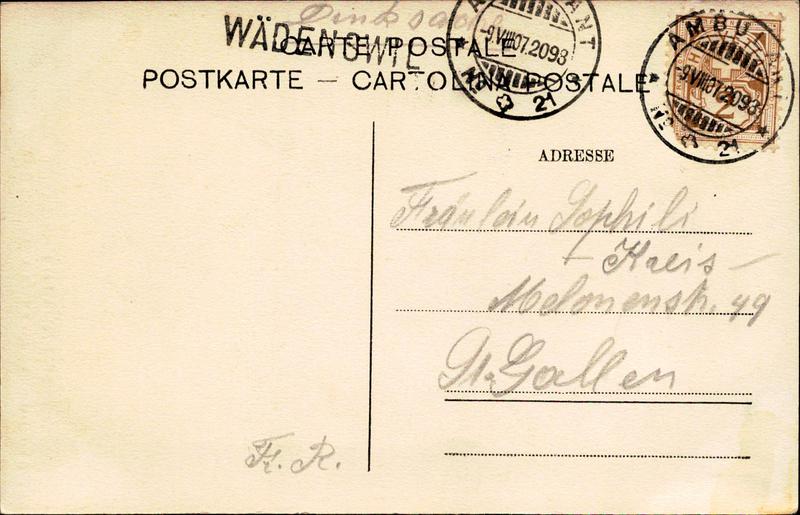 Drucksache
WÄDENSWIL
CARTE POSTALE
POSTKARTE — CARTOLINA POSTALE
AMBULANT
-9.VIII.07.2098
21
AMBULANT
-9.VIII.07.2098
21
ADRESSE
Fräulein Sophili
- Kreis -
Melonenstr. 49
St. Gallen
Fr. R.